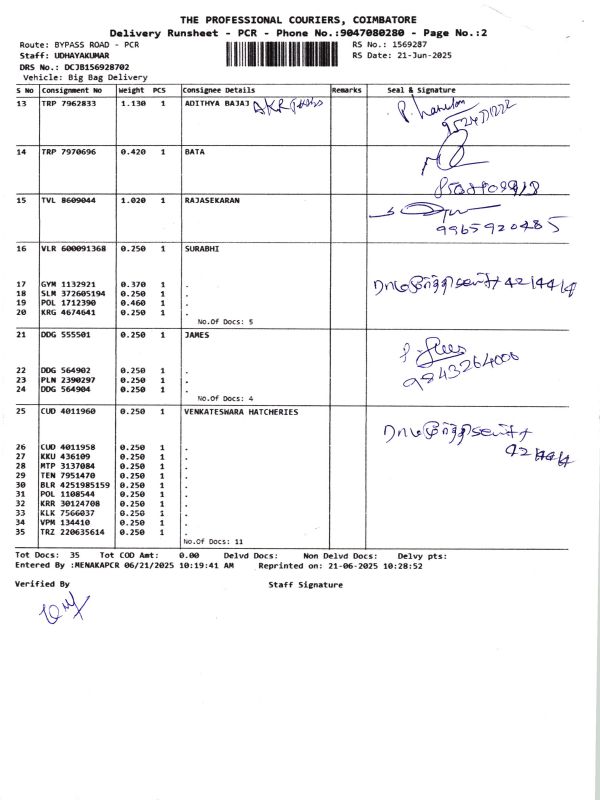 THE PROFESSIONAL COURIERS, COIMBATORE
Delivery Runsheet - PCR - Phone No.:9047080280 - Page No.:2
Route: BYPASS ROAD - PCR RS No.: 1569287
Staff: UDHAYAKUMAR RS Date: 21-Jun-2025
DRS No.: DCJB156928702
Vehicle: Big Bag Delivery
S No Consignment No Weight PCS Consignee Details Remarks Seal & Signature
13 TRP 7962833 1.130 1 ADITHYA BAJAJ AKR
14 TRP 7970696 0.420 1 BATA
15 TVL 8609044 1.020 1 RAJASEKARAN
9965920485
16 VLR 600091368 0.250 1 SURABHI
17 GYM 1132921 0.370 1 .
18 SLM 372605194 0.250 1 .
19 POL 1712390 0.460 1 .
20 KRG 4674641 0.250 1 .
No.Of Docs: 5
21 DDG 555501 0.250 1 JAMES
9843264006
22 DDG 564902 0.250 1 .
23 PLN 2390297 0.250 1 .
24 DDG 564904 0.250 1 .
No.Of Docs: 4
25 CUD 4011960 0.250 1 VENKATESWARA HATCHERIES
26 CUD 4011958 0.250 1 .
27 KKU 436109 0.250 1 .
28 MTP 3137084 0.250 1 .
29 TEN 7951470 0.250 1 .
30 BLR 4251985159 0.250 1 .
31 POL 1108544 0.250 1 .
32 KRR 30124708 0.250 1 .
33 KLK 7566037 0.250 1 .
34 VPM 134410 0.250 1 .
35 TRZ 220635614 0.250 1 .
No.Of Docs: 11
Tot Docs: 35 Tot COD Amt: 0.00 Delvd Docs: Non Delvd Docs: Delvy pts:
Entered By :MENAKAPCR 06/21/2025 10:19:41 AM Reprinted on: 21-06-2025 10:28:52
Verified By Staff Signature